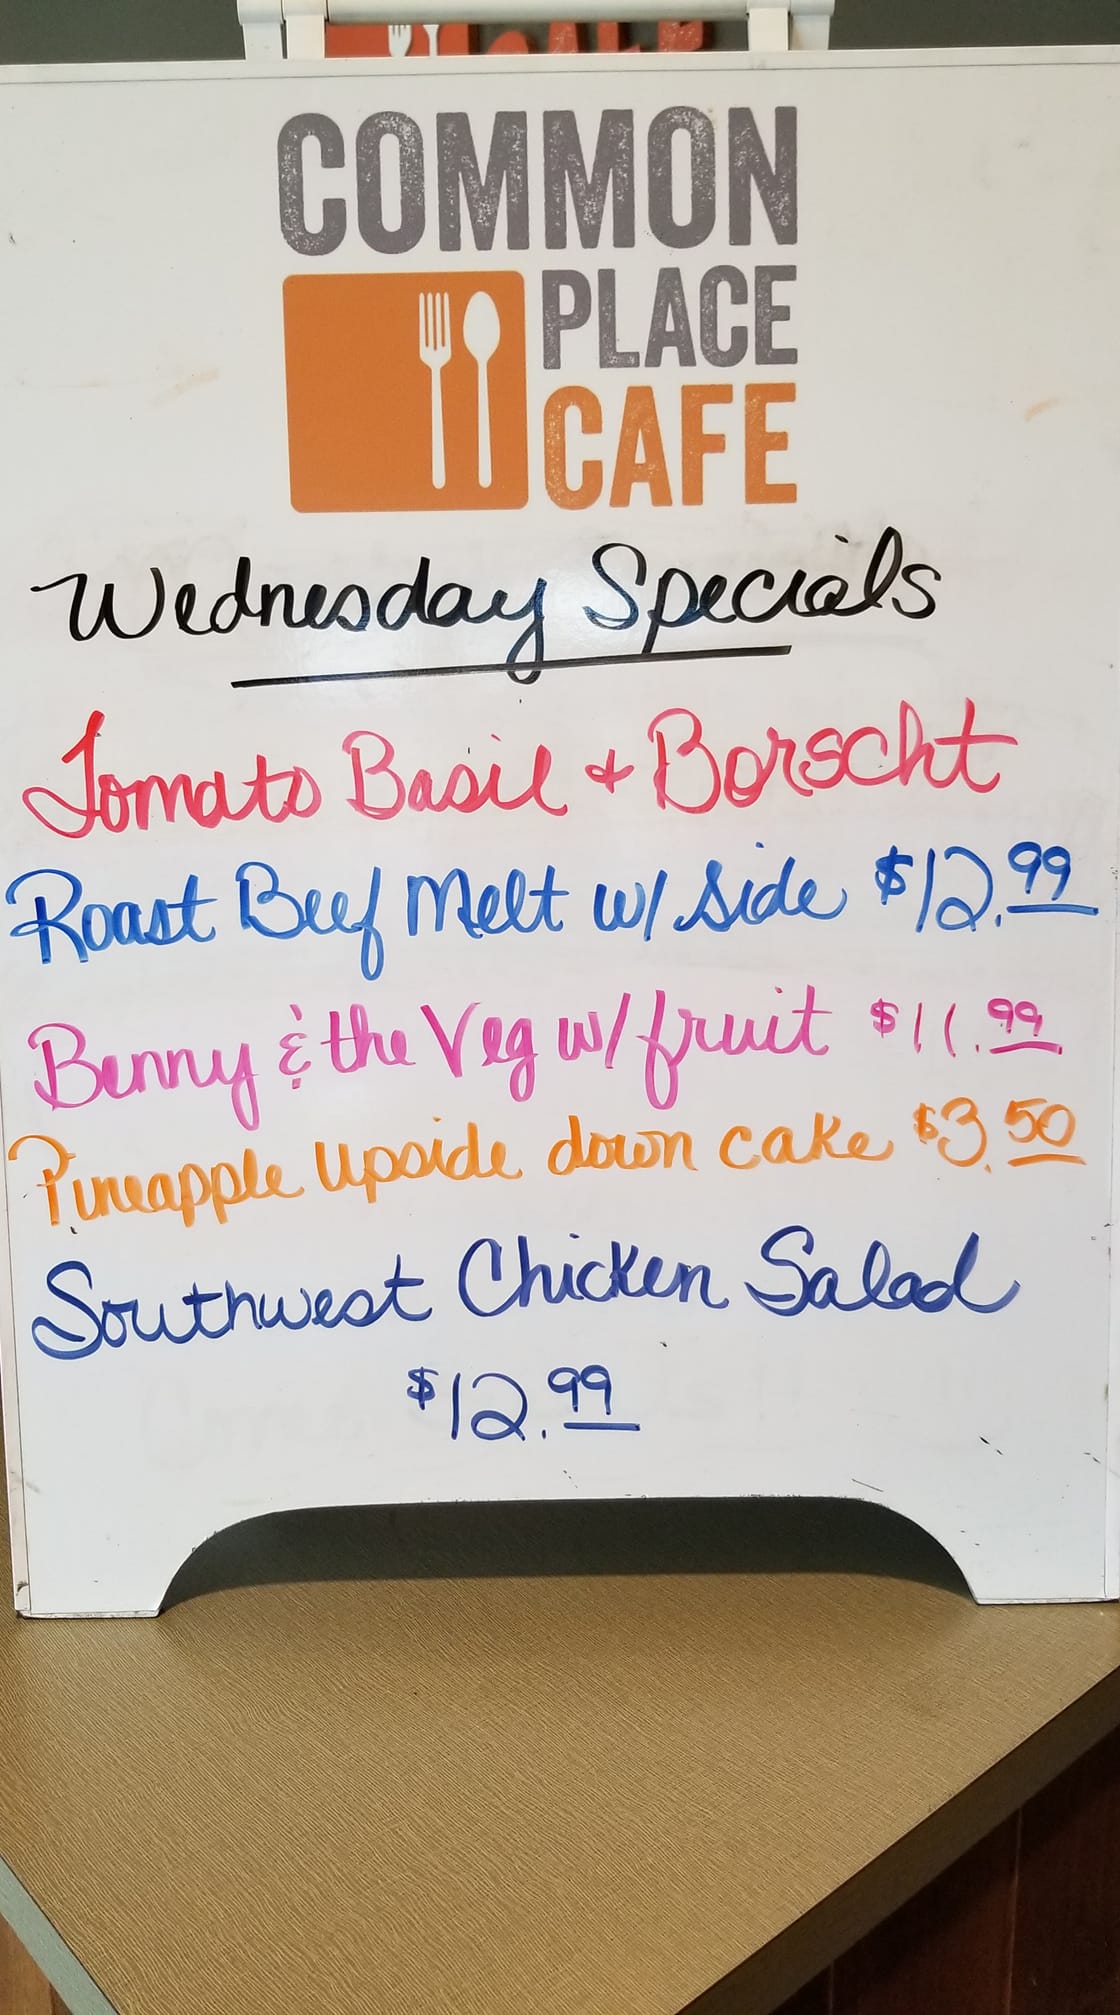 COMMON
PLACE
CAFE
Wednesday Specials
Tomato Basil & Borscht
Roast Beef Melt w/ side $12.99
Benny & the Veg w/ fruit $11.99
Pineapple Upside down cake $3.50
Southwest Chicken Salad
$12.99